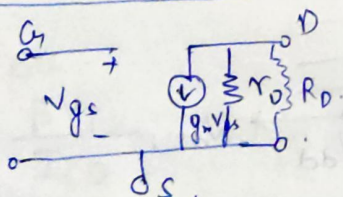 G
D
+
Vgs
-
gmVgs
ro
RD
S